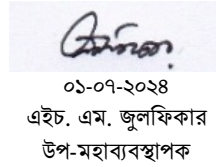 ০১-০৭-২০২৪
এইচ. এম. জুলফিকার
উপ-মহাব্যবস্থাপক